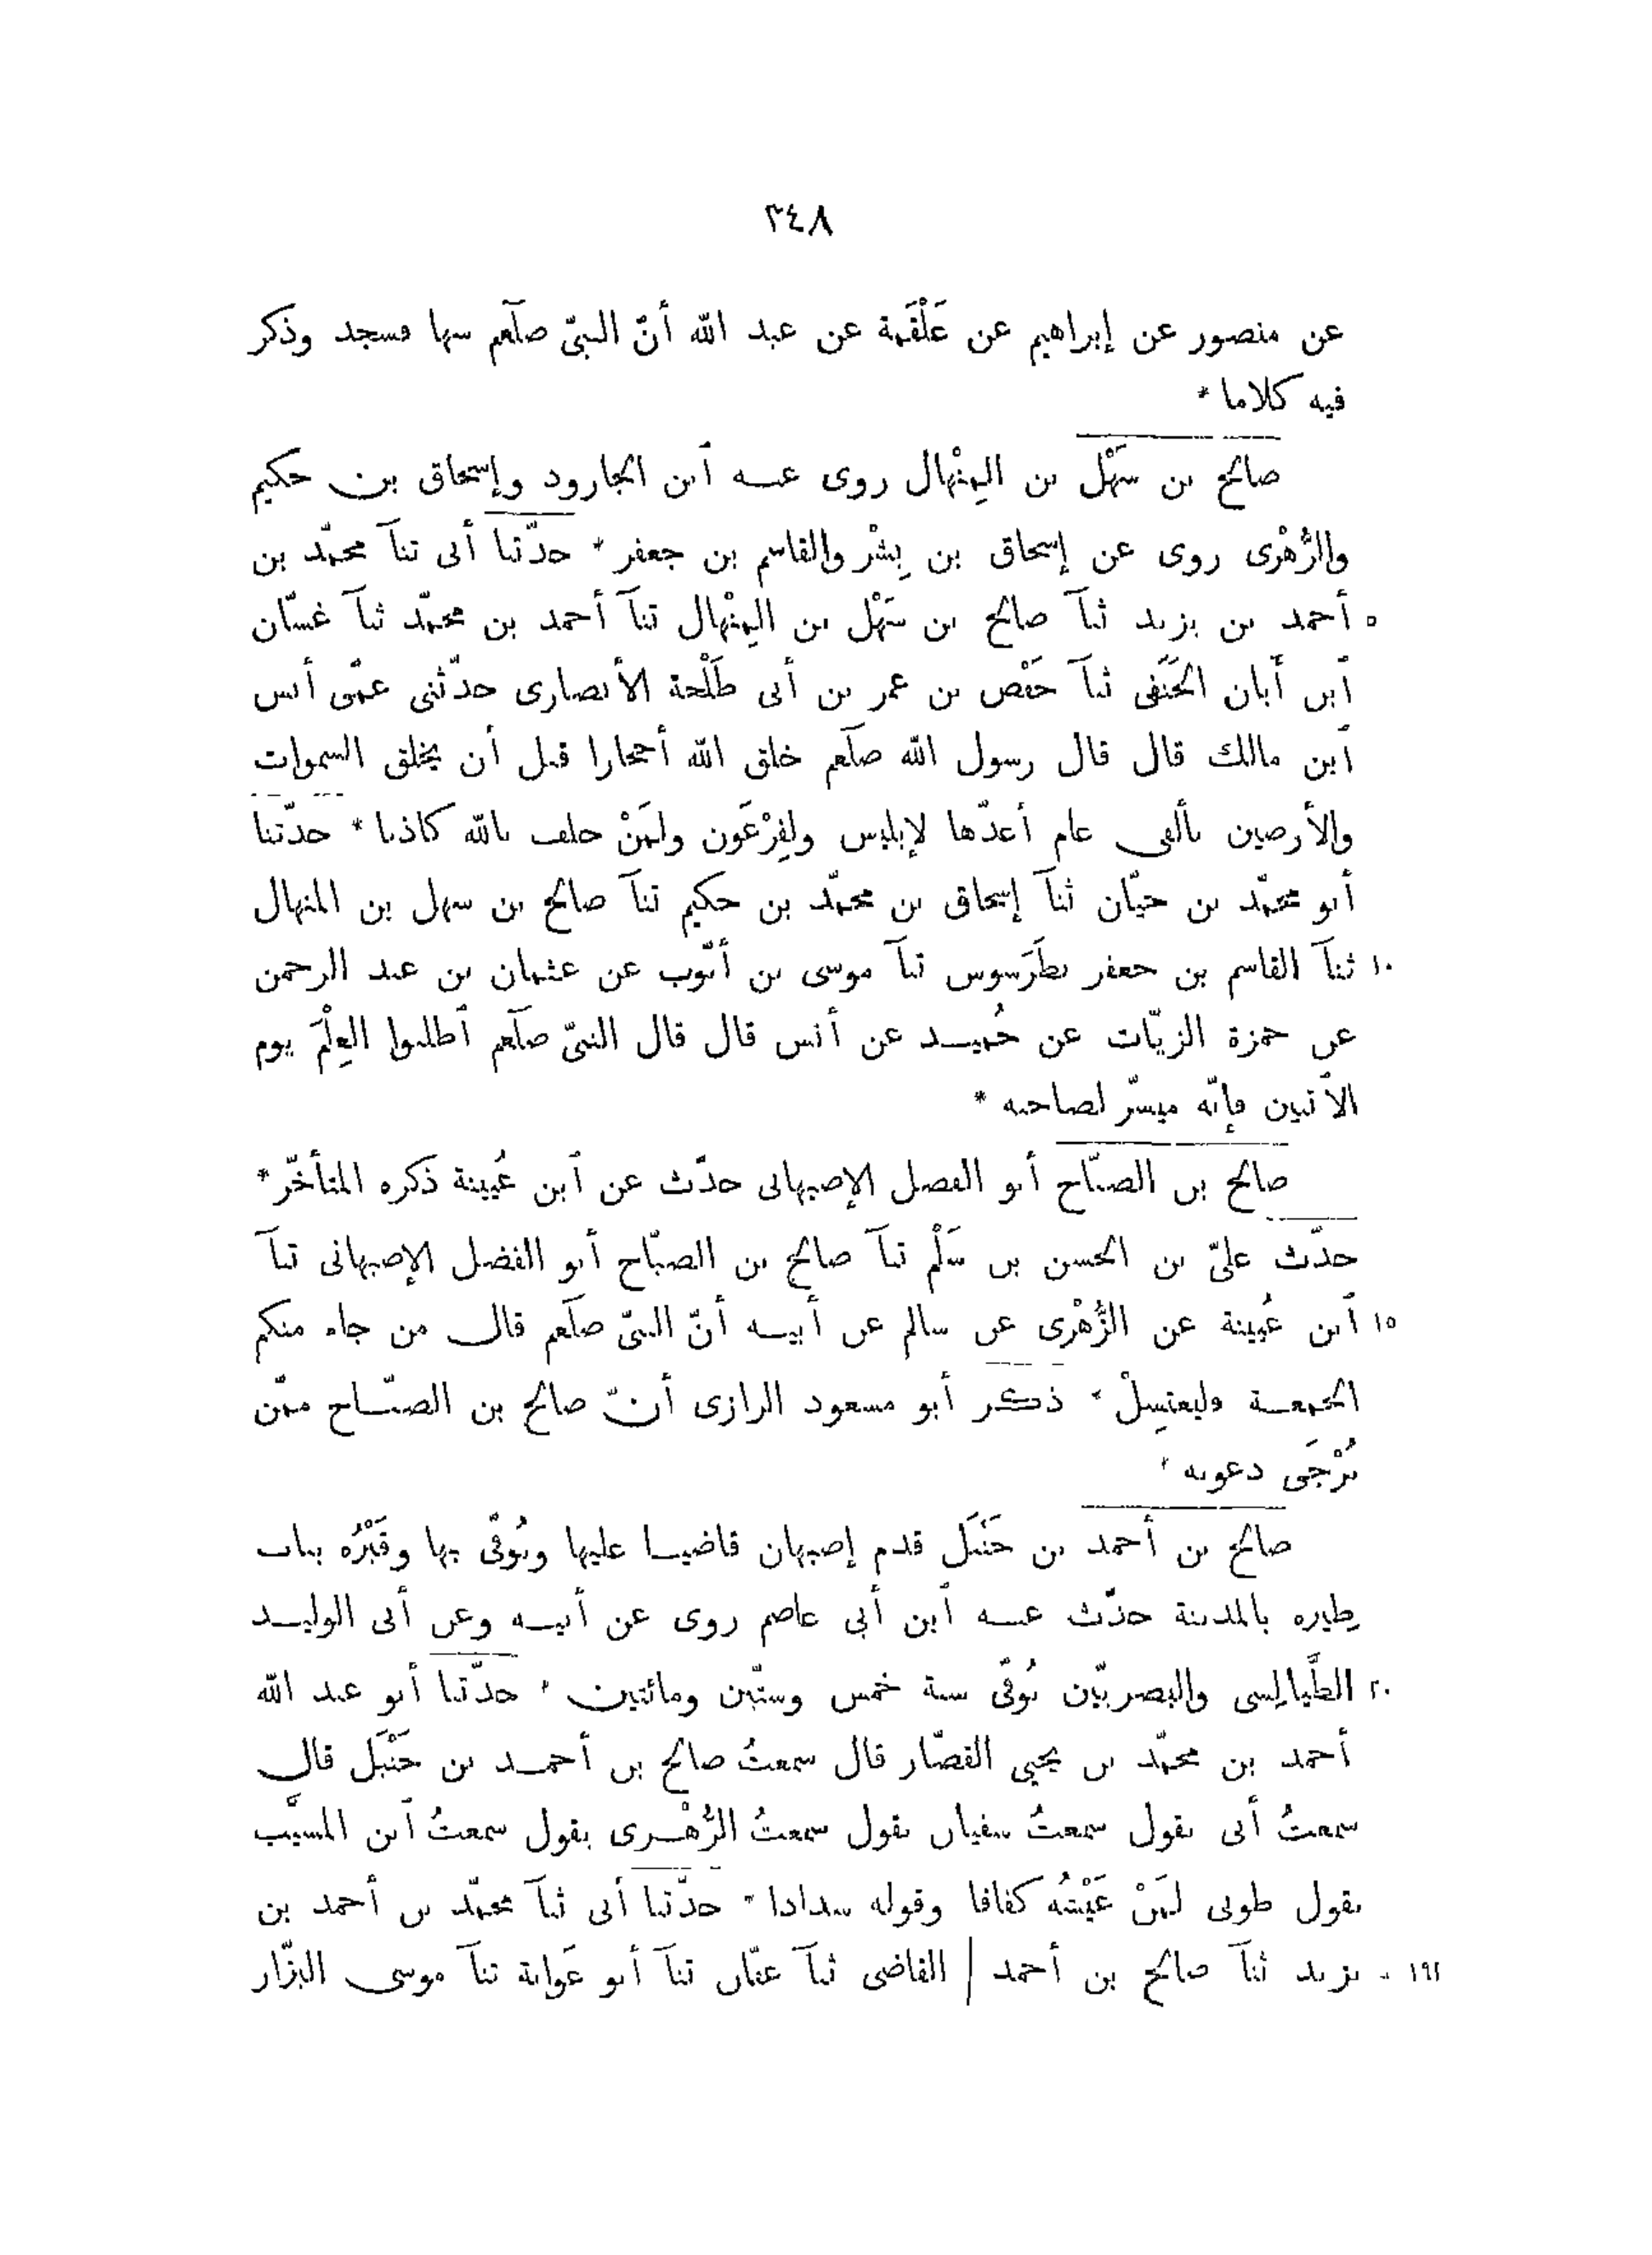 ٣٤٨
عن منصور عن إبراهيم عن عَلْقَمة عن عبد الله أنّ النبىّ صلّعم سها فسجد وذكر
فيه كلاما *
صالح بن سَهْل بن المِنْهال روى عنه ٱبن الجارود وإسحاق بن حكيم
والزُّهْرى روى عن إسحاق بن بِشْر والقاسم بن جعفر * حدّثنا أبى ثنآ محمّد بن
٥ أحمد بن يزيد ثنآ صالح بن سَهْل بن المِنْهال ثنآ أحمد بن محمّد ثنآ غسّان
ٱبن أَبان الحَنَفى ثنآ حَفْص بن عمر بن أبى طَلْحة الأنصارى حدّثنى عمّى أنس
ٱبن مالك قال قال رسول الله صلّعم خلق الله أحجارا قبل أن يخلق السموات
والأرضين بألفى عام أعدّها لإبليس ولفِرْعَون ولمَنْ حلف بالله كاذبا * حدّثنا
أبو محمّد بن حيّان ثنآ إسحاق بن محمّد بن حكيم ثنآ صالح بن سهل بن المنهال
١٠ ثنآ القاسم بن جعفر بطَرَسوس ثنآ موسى بن أيّوب عن عثمان بن عبد الرحمن
عن حمزة الزيّات عن حُميد عن أنس قال قال النبىّ صلّعم ٱطلبوا العِلْمَ يوم
الٱثنين فإنّه ميسّر لصاحبه *
صالح بن الصبّاح أبو الفضل الإصبهانى حدّث عن ٱبن عُيينة ذكره المتأخّر *
حدّث علىّ بن الحسن بن سَلْم ثنآ صالح بن الصبّاح أبو الفضل الإصبهانى ثنآ
١٥ ٱبن عُيينة عن الزُّهْرى عن سالم عن أبيه أنّ النبىّ صلّعم قال من جاء منكم
الجمعة فليغتسِلْ * ذكر أبو مسعود الرازى أنّ صالح بن الصبّاح ممّن
تُرْجَى دعوته *
صالح بن أحمد بن حَنْبَل قدم إصبهان قاضيا عليها وتُوفّى بها وقَبْرُه بباب
طِيره بالمدينة حدّث عنه ٱبن أبى عاصم روى عن أبيه وعن أبى الوليد
٢٠ الطَّيالِسى والبصريّين تُوفّى سنة خمس وستّين ومائتين * حدّثنا أبو عبد الله
أحمد بن محمّد بن يحيى القصّار قال سمعتُ صالح بن أحمد بن حَنْبَل قال
سمعتُ أبى يقول سمعتُ سفيان يقول سمعتُ الزُّهْرى يقول سمعتُ ٱبن المسيّب
يقول طوبى لمَنْ عَيْشُه كفافا وقوله سدادا * حدّثنا أبى ثنآ محمّد بن أحمد بن
١٩١ يزيد ثنآ صالح بن أحمد | القاضى ثنآ عفّان ثنآ أبو عَوانة ثنآ موسى البزّار